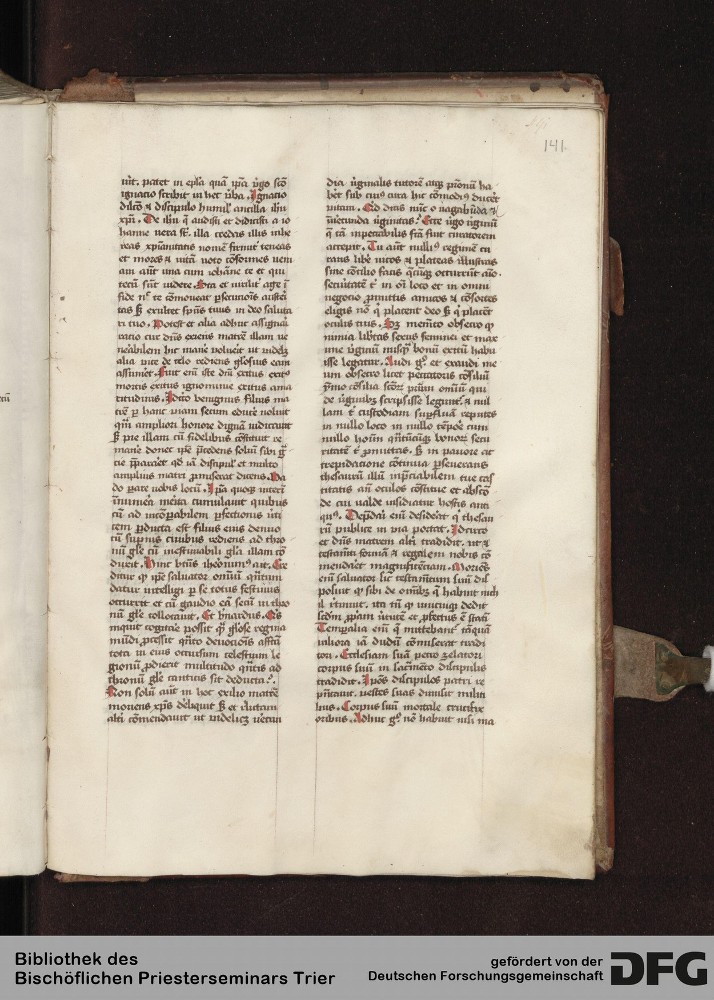 141
nūt. patet in epl̄a quā ip̄a v̓go sc̄o
ignacio scribit in hec v̓ba. Ignacio
dilc̄o ⁊ discipulo humil̓ ancilla ih̄u
xp̄i. De ih̄u q̄ audisti et didicisti a io
hanne uera st̄. illa credas illis inhe
reas xp̄ianitatis nomē firmit̓ teneas
et mores ⁊ uitā uoto cōformes ueni
am aūt una cum ioh̄ane te et qui
tecū sūt uidere. Sta et uirilit̓ age ī
fide n̄ te cōmoueat p̄secucionis austēi
tas ꝫ exultet sp̄us tuus in deo saluta
ri tuo. Potest et alia adhuc assignai
racio cur dn̄s exiens matrē illam ve
nerabilem hic manē̓ uoluerit ut videlꝫ
alia uice de celo rediens gl̓osius eam
assumeret. Fuit eni iste dn̄i exitus
mortis exitus ignominie exitus ama
ritudinis. Idcirco benignus filius ma
trē p̄ hanc uiam secum educē̓ noluit
qm̄ ampliori honore dignā iudicauit
ꝫ pie illam cū fidelibus cōstituit re
manē̓ donec ip̄e p̄cedens solium sibi gl̄
rie p̄pararet qd̓ ia discipul̓ et multo
amplius matri p̄miserat dicens. Va
do parare uobis locū. Ip̄a quoqꝫ interī
inumera merita cumulauit quibus
cū ad incōparabilem p̄fectionis uir
tem p̄ducta est filius eius denuo
cū supnis ciuibus rediens ad thro
nū gl̄e cū inestimabili gl̄ia illam cō
duxit. Hinc bt̄us iheronimꝰ ait. Cre
ditur qꝫ ip̄e saluator omnium qn̄tum
datur intelligi p̄ se totus festiuus
occurrit et cū gaudio eā secū in thro
no gl̄e collocauit. Et bernardus. Quis
inquit cogitare possit qꝫ gl̓ose regina
mūdi p̄cessit qn̄to deuocionis affectu
tota in eius occursum celestium le
gionū p̄dierit multitudo qn̄tis ad
thronū gl̄e canticis sit deducta.
Non solū aūt in hoc exilio matrē
moriens xp̄s deliquit ꝫ et iductam
alt̓i cōmendauit ut videlicet uerum
dia v̓ginalis tutorē atqꝫ p̄roniū ha
bēt sub cuiꝰ cura hic cōmodiꝰ duceret
uitam. Qid dicis nūc o uagabūda et
inuerecunda uirginitas. Ecce uirgo v̓ginū
q̄ tā inpeccabilis sc̄ā fuit curatorem
accepit. Tu aūt nulliꝰ regimē cu
rans libē̓ uicos ⁊ plateas illustras
sine cōsilio facis qcūqꝫ occurrūt aīo.
securitatē ī in oī loco et in omni
negocio p̄mittis amicos ⁊ cōsortes
eligis nō q̄ placent deo ꝫ q̄ placēt
oculis tuis. Sꝫ memēto obsecro qꝫ
nimia lib̄tas sexus feminei et max
ime v̓ginū nusqꝫ bonū exitū habu
isse legatur. Audi gͦ et exaudi me
um obsecro licet peccatoris cōsiliū
ymmo cōsilia sc̄oꝝ patrum omniū qui
de v̓ginibꝫ scripsisse leguntꝰ ⁊ nul
lam t̓ custodiam superfluā reputes
in nullo loco in nullo tēpore cum
nullo hoīm qn̄tūcūqꝫ bonoꝝ secu
ritatē t̓ p̄mittas. ꝫ in pauore ac
trepidacione cōtinua p̄seuerans
thesaurū illū inp̄ciabilem tue cas
titatis an̄ oculos cōstitue et absco
de cui ualde insidiatur hostis anti
quꝰ. Dep̄dari eni desiderat q̄ thesau
rū publice in uia portat. Idcirco
et dn̄s matrem alt̓i tradidit. ut et
testamēti formā ⁊ regalem nobis cō
mendaret magnificenciam. Moriens
eni saluator sic testamentum suū dis
posuit qꝫ sibi de omībꝫ q̄ habuit nich
il retinuit. ita tū qꝫ unicuiqꝫ dedit
scd̄m p̄priam uirtutē et p̄fectus ē statū
Temporalia eni q̄ mittebant̓ tāquā
uiliora ia dudū cōmiserat tradi
tori. Ecclesiam suā petro zelatori
corpus suū in sacramēto discipulis
tradidit. Ip̄os discipulos patri re
p̄ntauit. uestes suas diuisit militi
bus. Corpus suū mortale crucifix
oribus. Adhuc gͦ nō habuit nisi ma
Bibliothek des
Bischöflichen Priesterseminars Trier
gefördert von der
Deutschen Forschungsgemeinschaft
DFG